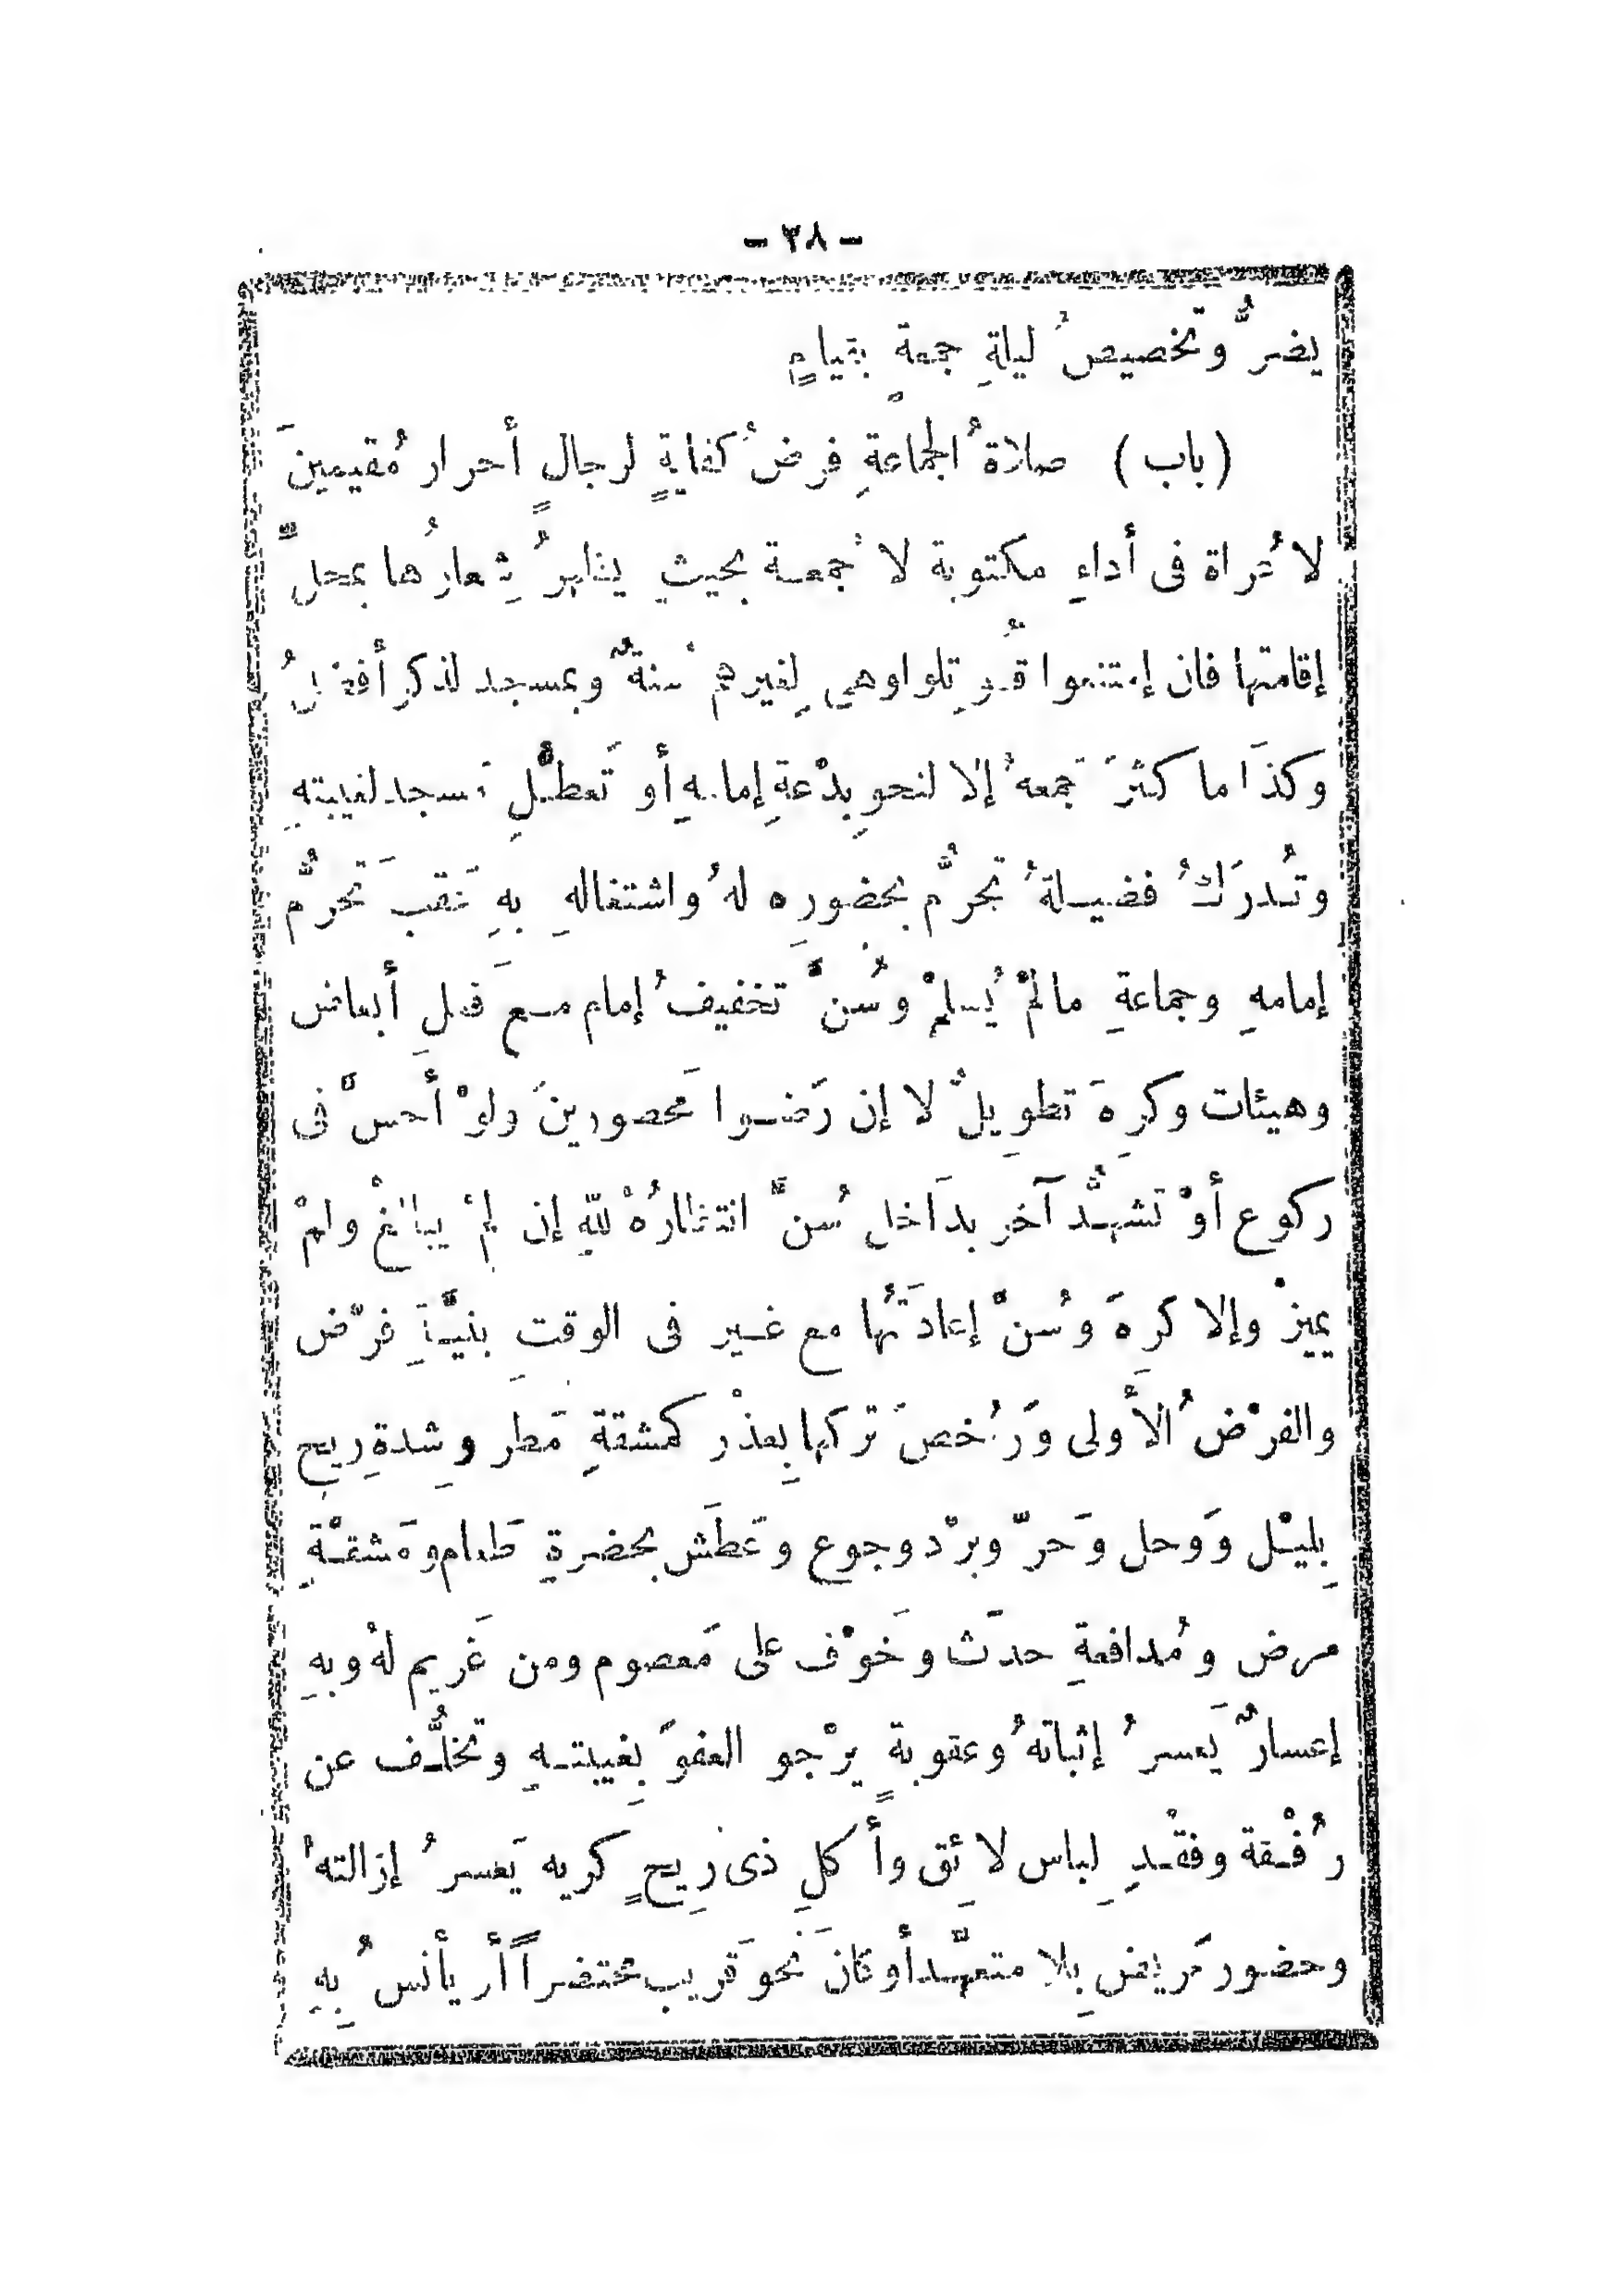 - ٣٨ -
يضرُّ وتخصيصُ ليلةِ جمعةٍ بقيامٍ
(باب) صلاةُ الجماعةِ فرضُ كفايةٍ لرجالٍ أحرار مُقيمينَ
لا عُراة فى أداءِ مكتوبة لا جمعة بحيث يظهرُ شِعارُها بمحلِّ
إقامتها فان إمتنعوا قُوتِلوا وهى لِغيرهمْ سنةٌ وبمسجد لذكرٍ أفضلُ
وكذَا ما كثرَ جَمعهُ إلا لنحوِ بدْعةِ إمامهِ أو تَعطْلِ مَسجد لغيبتهِ
وتُدرَكُ فضيلةُ تَحرُّم بحضورِه لهُ واشتغالهِ بهِ عَقبَ تَحرُّم
إمامهِ وجماعةِ مالمْ يُسلمْ وسُنَّ تخفيفُ إمام مع فعلِ أبعاض
وهيئات وكرِهَ تطويلٌ لا إن رَضوا مَحصورينَ ولوْ أَحسَّ فى
ركوع أوْ تَشهُّد آخر بدَاخل سُنَّ انتظارُهْ للهِ إن لمْ يبالغْ ولمْ
يميزْ وإلا كرِهَ وسُنَّ إعادَتُها مع غير فى الوقتِ بنيَّةِ فرْض
والفرْضُ الأُولى وَرُخصَ تركها بِعذْر كمشقةِ مَطر وشِدةِ ريح
بِليْل وَوَحل وَحرّ وبرْد وجوع وعَطَش بحضرةِ طَعام ومَشقةِ
مرض ومُدافعةِ حدَث وخَوْف على مَعصوم ومن غَريم لهُ وبهِ
إعسارٌ يَعسرُ إثباتهُ وعقوبةٍ يرْجو العفوَ بِغيبتهِ وتخلُّف عن
رُفْقة وفقْدِ لِباس لائِق وأكلِ ذى رِيحٍ كريه يَعسرُ إزالتهُ
وحضور مَريض بِلا متعهِّد أو كانَ نَحوَ قَريب محتضراً أو يأنسُ بِهِ